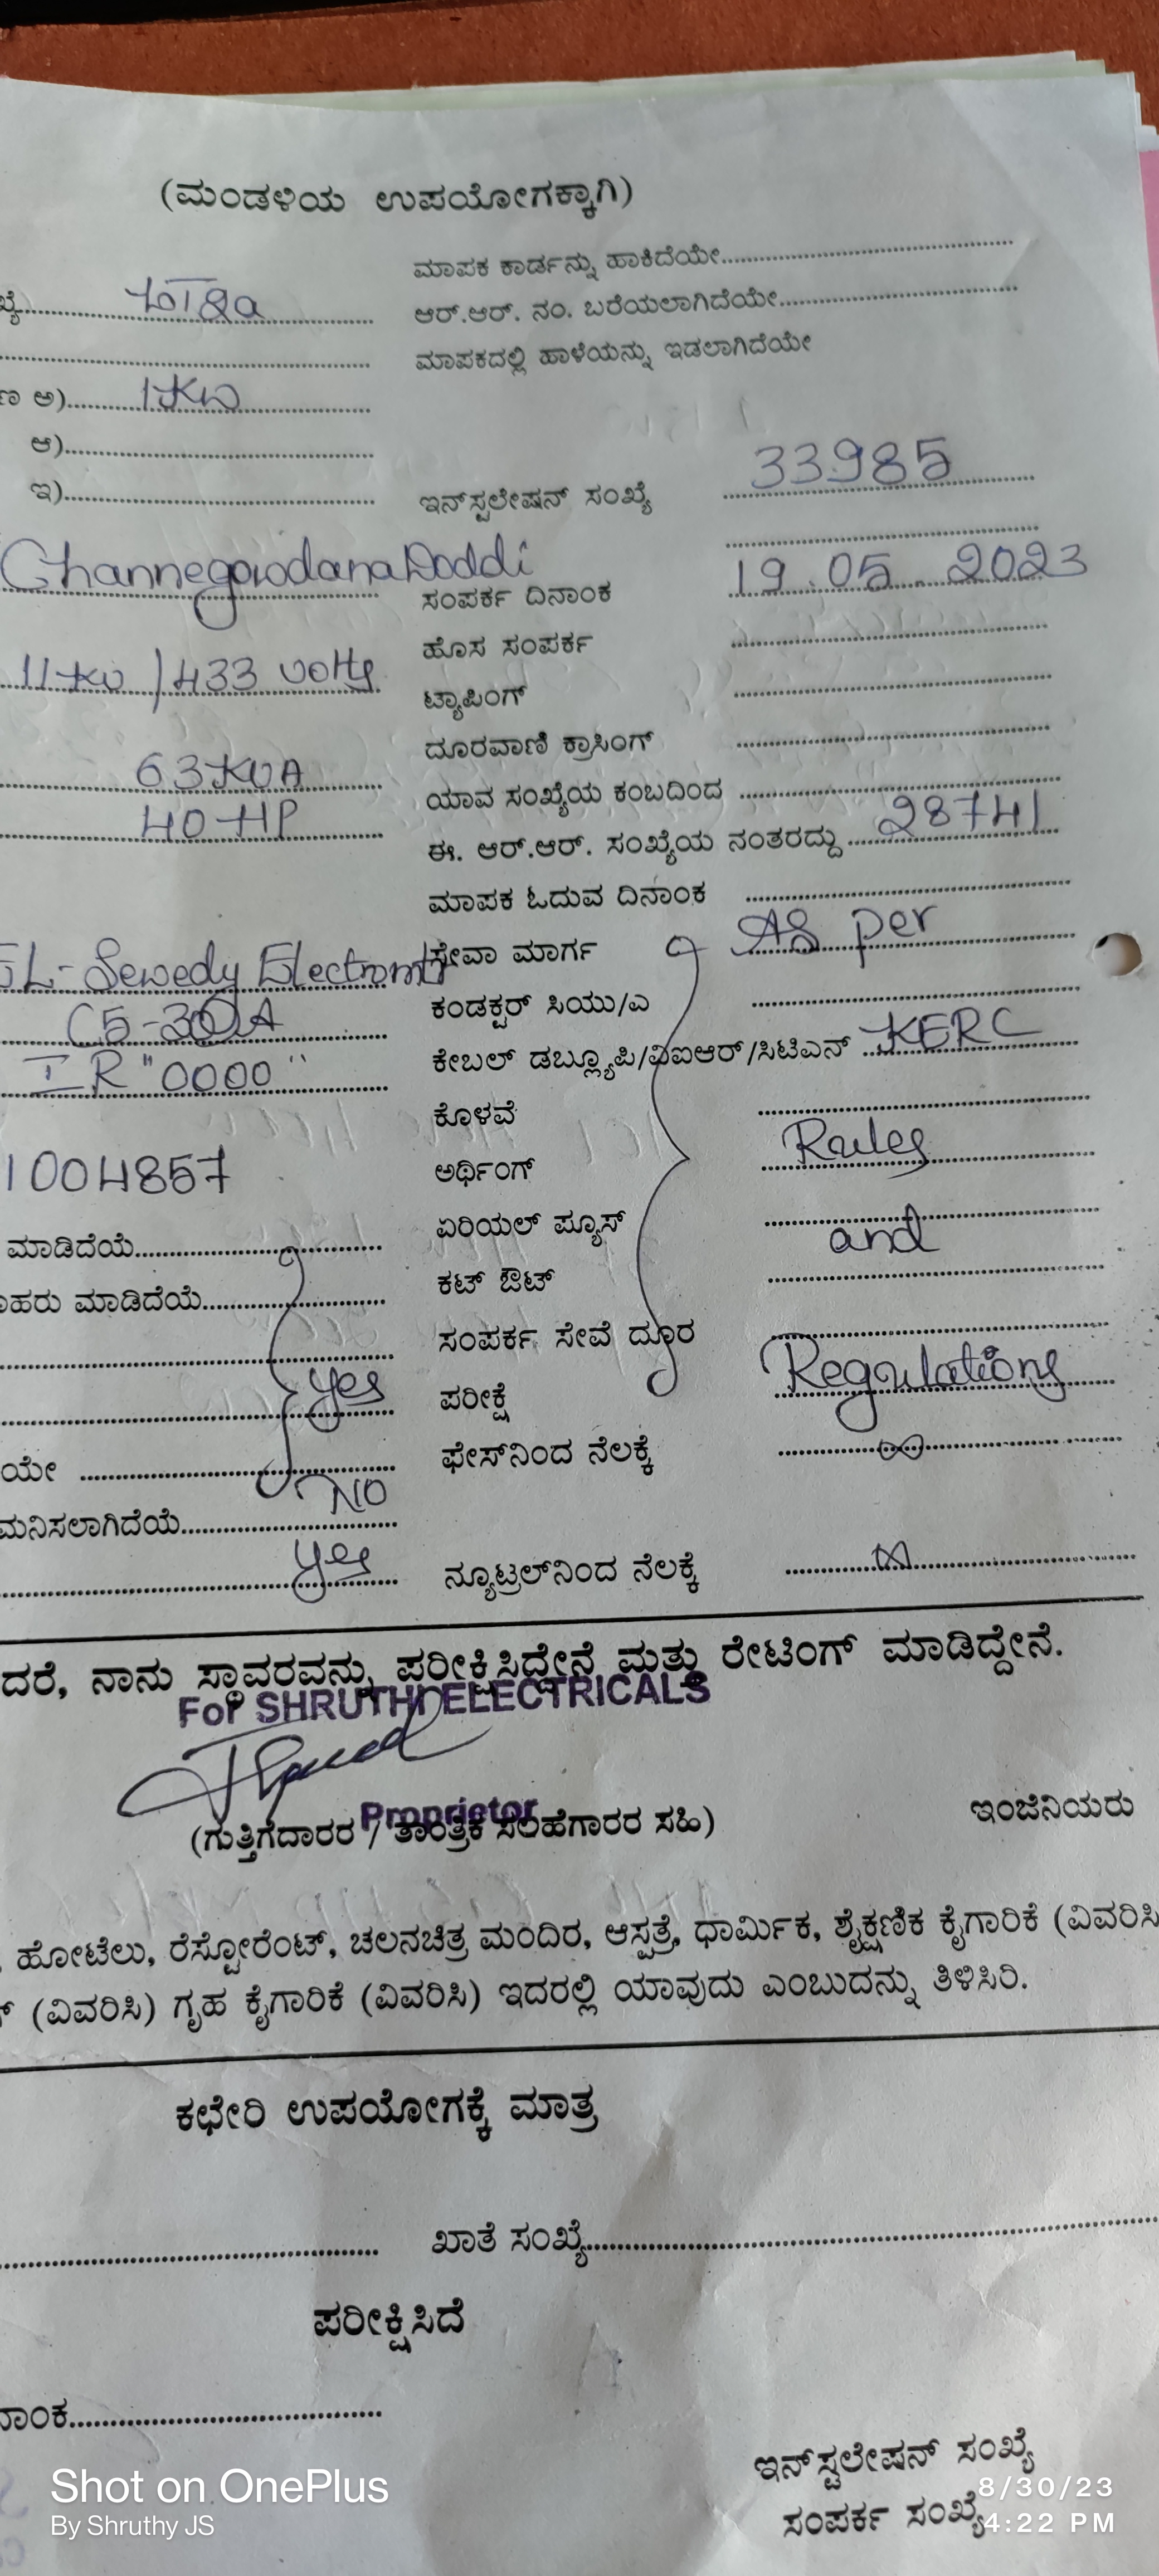 (ಮಂಡಳಿಯ ಉಪಯೋಗಕ್ಕಾಗಿ)
ಮಾಪಕ ಕಾರ್ಡನ್ನು ಹಾಕಿದೆಯೇ
ಆರ್.ಆರ್. ನಂ. ಬರೆಯಲಾಗಿದೆಯೇ
ಮಾಪಕದಲ್ಲಿ ಹಾಳೆಯನ್ನು ಇಡಲಾಗಿದೆಯೇ
ಅ) 1KW
ಆ)
ಇ)
ಇನ್‌ಸ್ಟಲೇಷನ್ ಸಂಖ್ಯೆ 33985
ChannegowdanaDoddi
ಸಂಪರ್ಕ ದಿನಾಂಕ 19.05.2023
ಹೊಸ ಸಂಪರ್ಕ
11KV/433 volts ಟ್ಯಾಪಿಂಗ್
ದೂರವಾಣಿ ಕ್ರಾಸಿಂಗ್
63KVA ಯಾವ ಸಂಖ್ಯೆಯ ಕಂಬದಿಂದ
40HP ಈ. ಆರ್.ಆರ್. ಸಂಖ್ಯೆಯ ನಂತರದ್ದು 28741
ಮಾಪಕ ಓದುವ ದಿನಾಂಕ
EL-Sewedy ಸೇವಾ ಮಾರ್ಗ As per
(5-30)A ಕಂಡಕ್ಟರ್ ಸಿಯು/ಎ
IR "0000" ಕೇಬಲ್ ಡಬ್ಲ್ಯೂಪಿ/ವಿಐಆರ್/ಸಿಟಿಎನ್ KERC
ಕೊಳವೆ
1004857 ಅರ್ಥಿಂಗ್ Rules
ಮಾಡಿದೆಯೆ ಏರಿಯಲ್ ಪ್ಯೂಸ್ and
ಮಾಡಿದೆಯೆ ಕಟ್ ಔಟ್
ಸಂಪರ್ಕ ಸೇವೆ ದೂರ
yes ಪರೀಕ್ಷೆ Regulations
ಫೇಸ್‌ನಿಂದ ನೆಲಕ್ಕೆ ∞
NO
yes ನ್ಯೂಟ್ರಲ್‌ನಿಂದ ನೆಲಕ್ಕೆ ∞
ನಾನು ಸ್ಥಾವರವನ್ನು ಪರೀಕ್ಷಿಸಿದ್ದೇನೆ ಮತ್ತು ರೇಟಿಂಗ್ ಮಾಡಿದ್ದೇನೆ.
For SHRUTHI ELECTRICALS
Proprietor
(ಗುತ್ತಿಗೆದಾರರ / ತಾಂತ್ರಿಕ ಸಲಹೆಗಾರರ ಸಹಿ) ಇಂಜಿನಿಯರು
ಹೋಟೆಲು, ರೆಸ್ಟೋರೆಂಟ್, ಚಲನಚಿತ್ರ ಮಂದಿರ, ಆಸ್ಪತ್ರೆ, ಧಾರ್ಮಿಕ, ಶೈಕ್ಷಣಿಕ ಕೈಗಾರಿಕೆ (ವಿವರಿಸಿ
(ವಿವರಿಸಿ) ಗೃಹ ಕೈಗಾರಿಕೆ (ವಿವರಿಸಿ) ಇದರಲ್ಲಿ ಯಾವುದು ಎಂಬುದನ್ನು ತಿಳಿಸಿರಿ.
ಕಛೇರಿ ಉಪಯೋಗಕ್ಕೆ ಮಾತ್ರ
ಖಾತೆ ಸಂಖ್ಯೆ
ಪರೀಕ್ಷಿಸಿದೆ
ಇನ್‌ಸ್ಟಲೇಷನ್ ಸಂಖ್ಯೆ
ಸಂಪರ್ಕ ಸಂಖ್ಯೆ
Shot on OnePlus
By Shruthy JS
8/30/23
4:22 PM